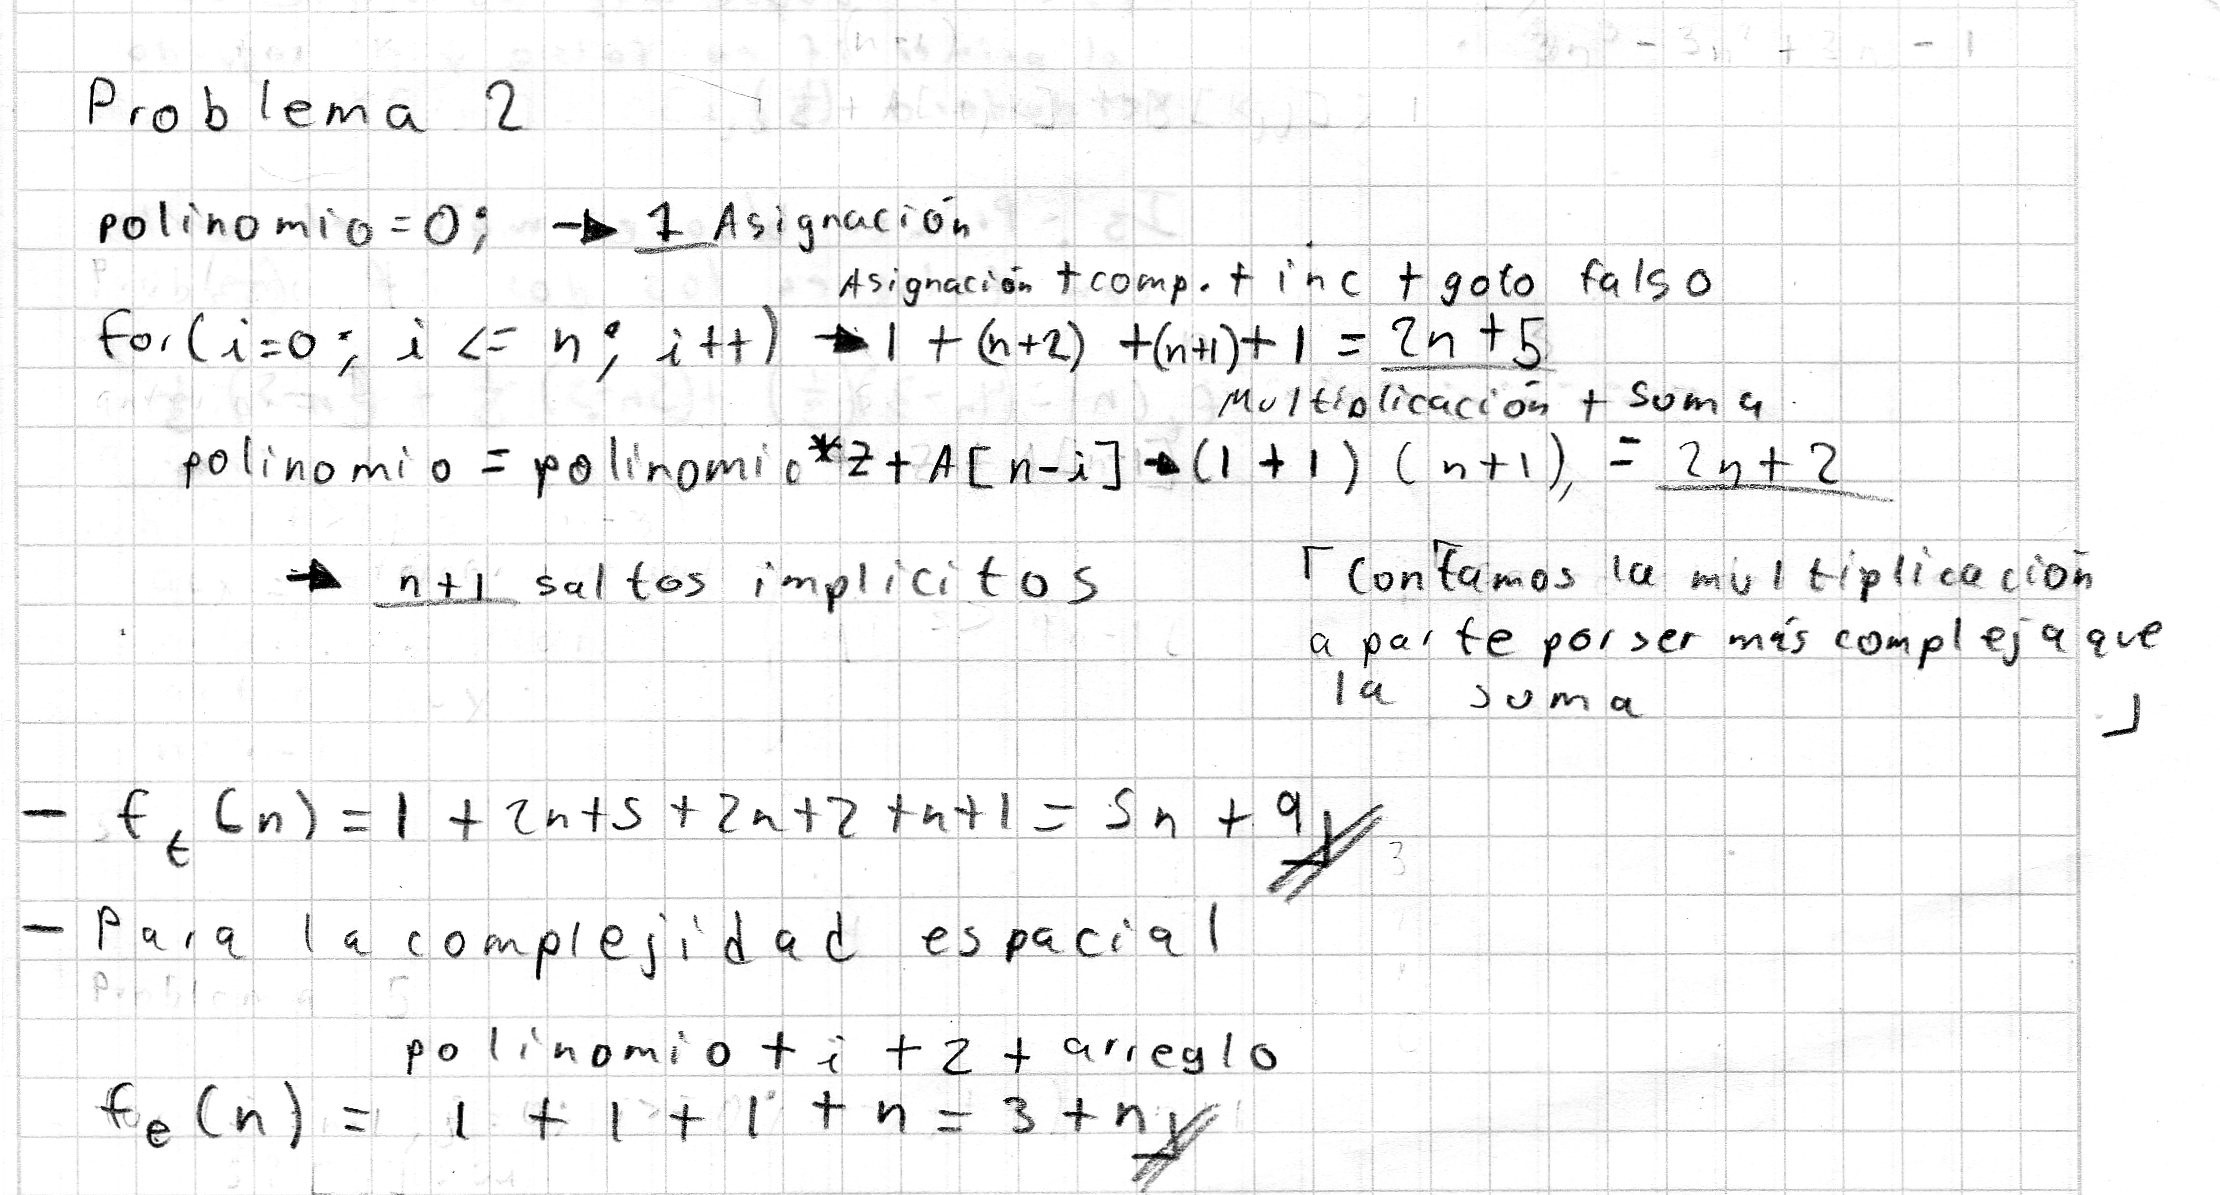 Problema 2
polinomio=0; → 1 Asignación
Asignación + comp. + inc + goto falso
for(i=0; i <= n; i++) → 1 + (n+2) + (n+1) + 1 = 2n+5
Multiplicación + suma
polinomio = polinomio*z + A[n-i] → (1+1) (n+1) = 2n+2
→ n+1 saltos implicitos
⌈ Contamos la multiplicación
a parte por ser más compleja que
la suma ⌋
- ft(n) = 1 + 2n+5 + 2n+2 + n+1 = 5n + 9
- Para la complejidad espacial
polinomio + i + z + arreglo
fe(n) = 1 + 1 + 1 + n = 3 + n